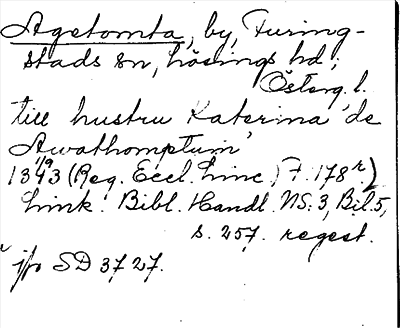 Agetomta, by, Furing-
stads sn, Lösings hd;
Österg. l.
till hustru Katerina 'de
Awathomptum'
19/4
1343 (Reg. Eccl. Linc, F. 178r.)
Link. Bibl. Handl. NS: 3, Bil. 5,
s. 257. regest.
jfr SD 3727.